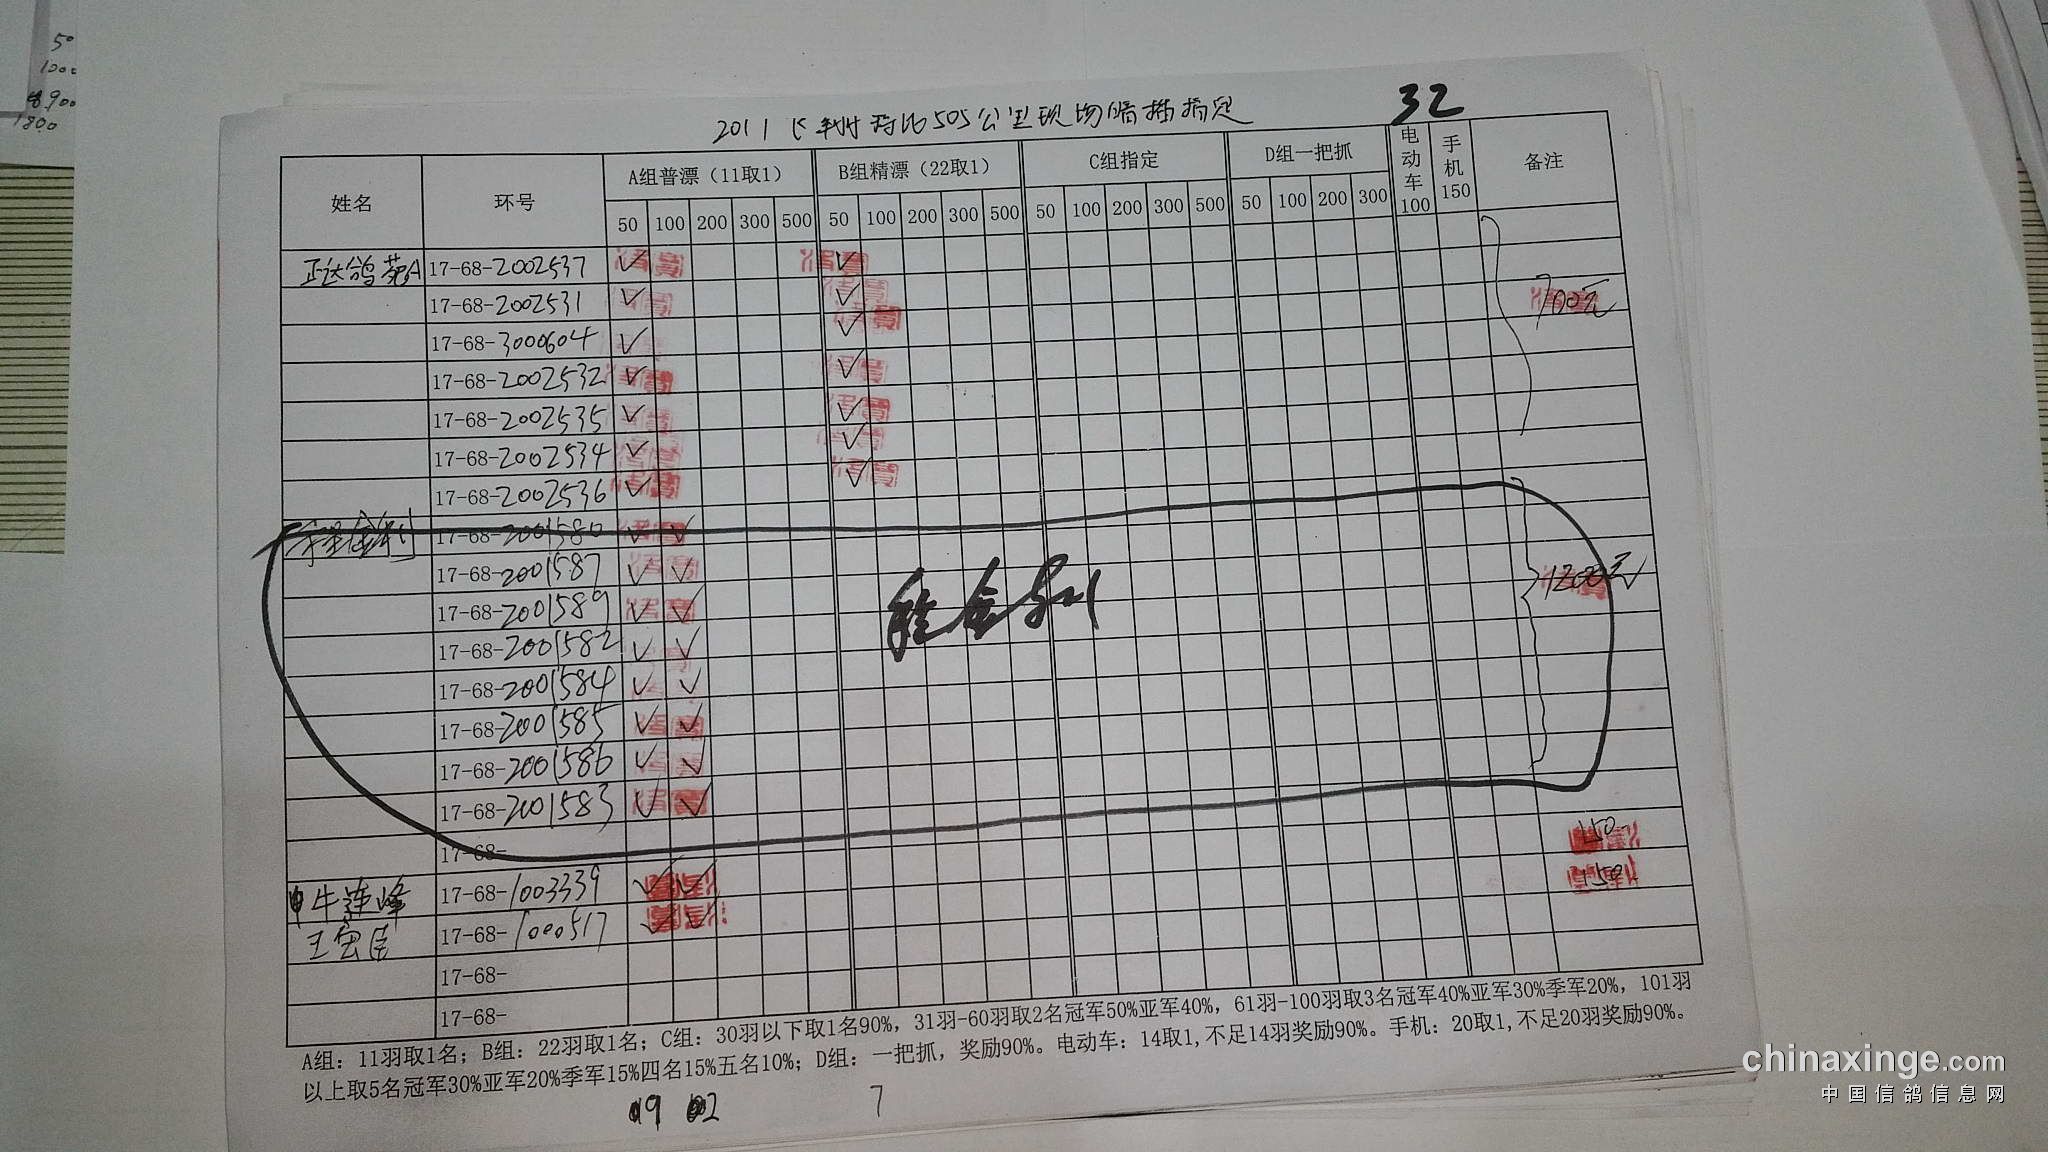 50
1000
8900
1800
32
2011飞 505公里现场 插指定
姓名 环号 A组普漂（11取1） B组精漂（22取1） C组指定 D组一把抓 电动车100 手机150 备注
50 100 200 300 500 50 100 200 300 500 50 100 200 300 500 50 100 200 300
正达鸽苑A 17-68-2002537 ✓ ✓
17-68-2002531 ✓ ✓ 700元
17-68-3000604 ✓ ✓
17-68-2002532 ✓ ✓
17-68-2002535 ✓ ✓
17-68-2002534 ✓ ✓
17-68-2002536 ✓ ✓
程金利 17-68-2001580 ✓ ✓
17-68-2001587 ✓ ✓ 1200元✓
17-68-2001589 ✓ ✓ 程金利
17-68-2001582 ✓ ✓
17-68-2001584 ✓ ✓
17-68-2001585 ✓ ✓
17-68-2001586 ✓ ✓
17-68-2001583 ✓ ✓
17-68- 150
牛连峰 17-68-1003339 ✓ ✓ 150
王宝臣 17-68-1000517 ✓ ✓
17-68-
17-68-
A组：11羽取1名；B组：22羽取1名；C组：30羽以下取1名90%，31羽-60羽取2名冠军50%亚军40%，61羽-100羽取3名冠军40%亚军30%季军20%，101羽
以上取5名冠军30%亚军20%季军15%四名15%五名10%；D组：一把抓，奖励90%。电动车：14取1,不足14羽奖励90%。手机：20取1,不足20羽奖励90%。
7
chinaxinge.com
中国信鸽信息网